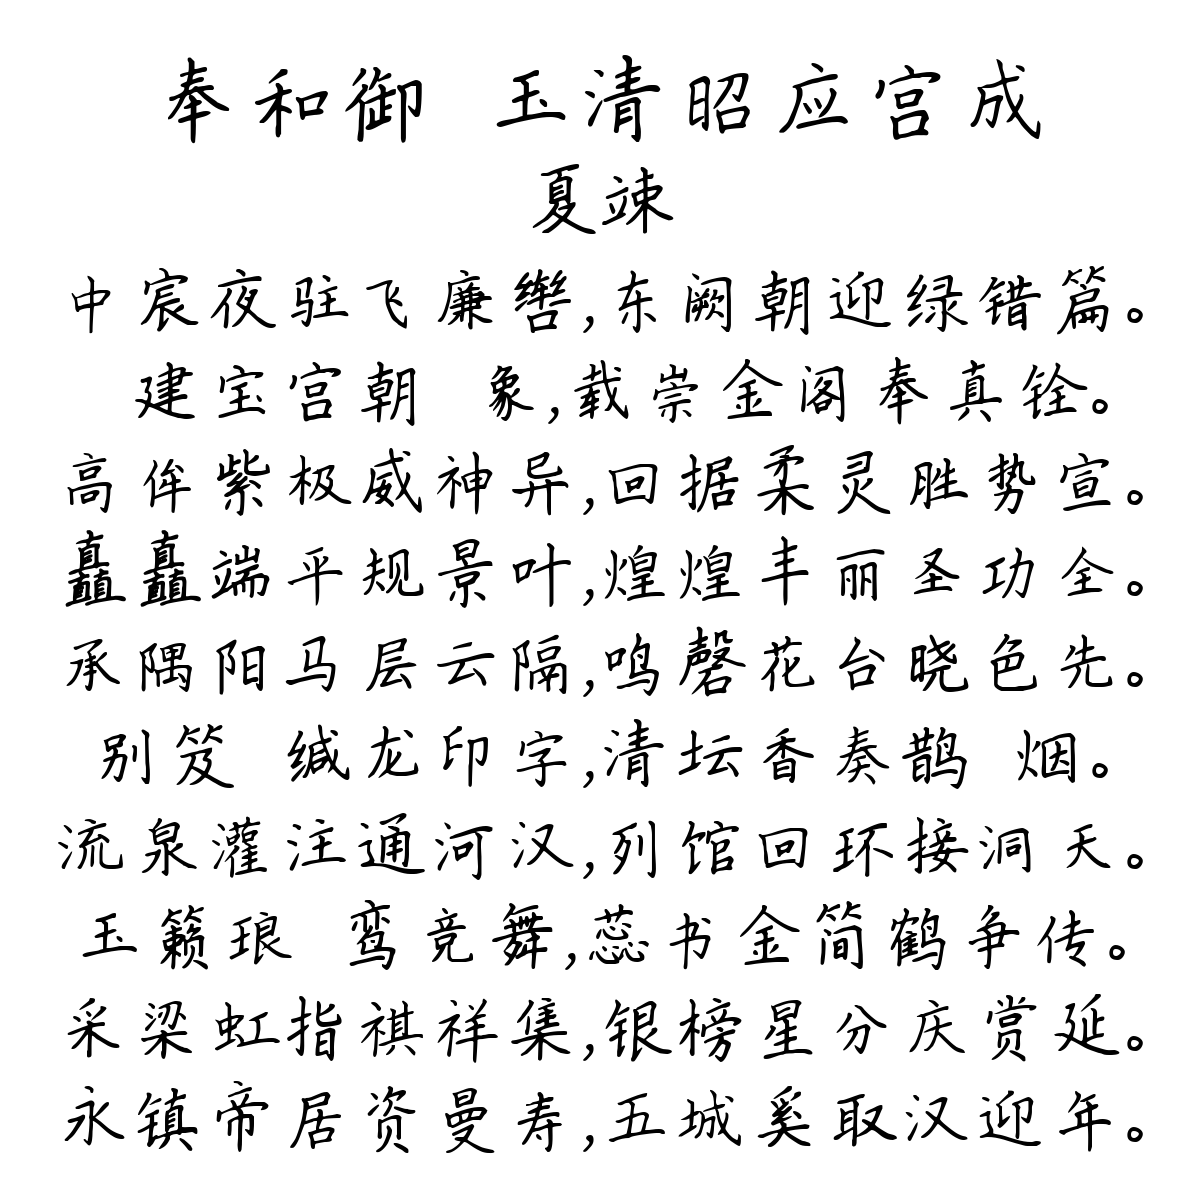 奉和御 玉清昭应宫成
夏竦
中宸夜驻飞廉辔,东阙朝迎绿错篇。
建宝宫朝 象,载崇金阁奉真铨。
高侔紫极威神异,回据柔灵胜势宣。
矗矗端平规景叶,煌煌丰丽圣功全。
承隅阳马层云隔,鸣磬花台晓色先。
别笈 缄龙印字,清坛香奏鹊 烟。
流泉灌注通河汉,列馆回环接洞天。
玉籁琅 鸾竞舞,蕊书金简鹤争传。
采梁虹指祺祥集,银榜星分庆赏延。
永镇帝居资曼寿,五城奚取汉迎年。